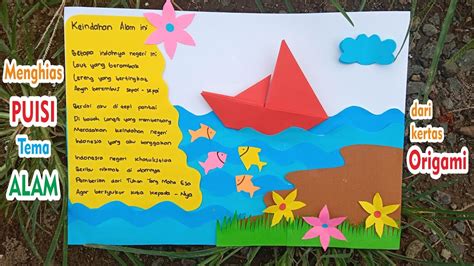 Menghias
PUISI
Tema
ALAM
Keindahan Alam ini
Betapa indahnya negeri ini
Laut yang berombak
Lereng yang bertingkat
Angin berembus sepoi - sepoi
Berdiri aku di tepi pantai
Di bawah langit yang membentang
Merasakan keindahan negeri
Indonesia yang aku banggakan
Indonesia negeri Khatulistiwa
Beribu nikmat di dalamnya
Pemberian dari Tuhan Yang Maha Esa
Agar bersyukur kita kepada - Nya
dari
kertas
Origami